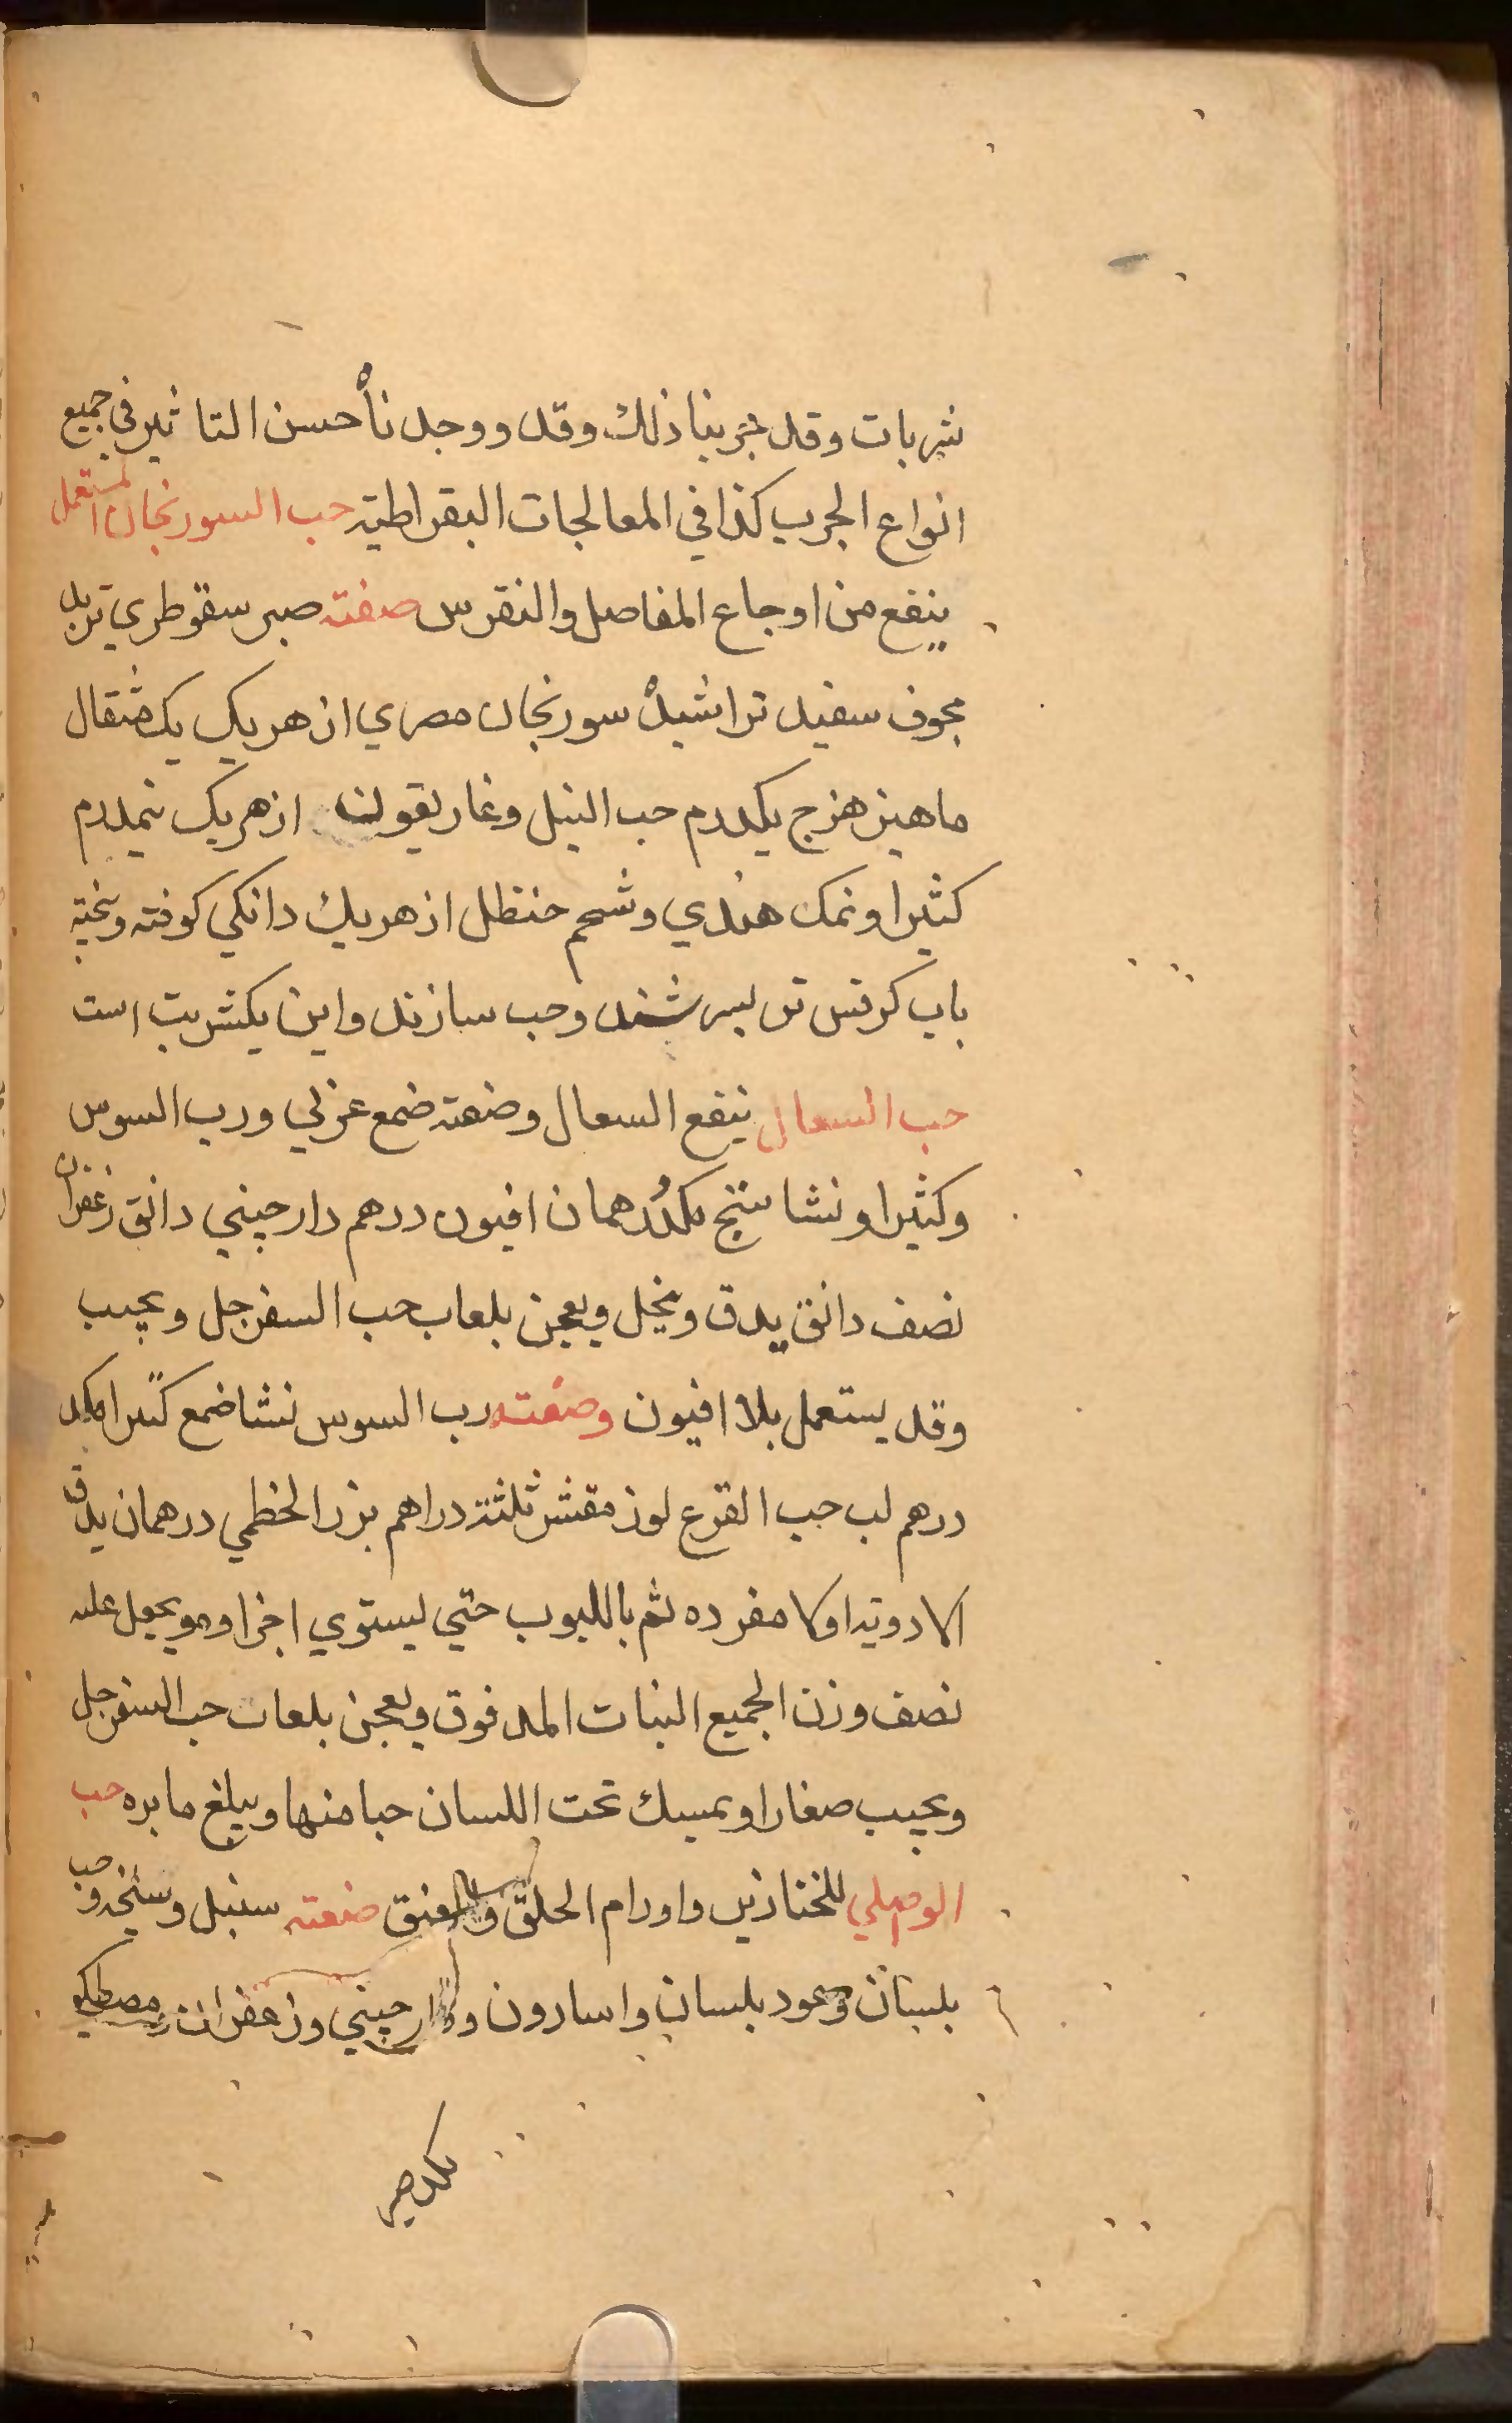 شربات وقد جربنا ذلك وقد ووجدناه حسن التاثير في جميع
انواع الجرب كذا في المعالجات البقراطية حب السورنجان المستعمل
ينفع من اوجاع المفاصل والنقرس صفته صبر سقوطري تربد
مجوف سفيد تراشيده سورنجان مصري از هر يك يك مثقال
ماهيزهزج يكدرم حب النيل وغاريقون از هريك نيمدرم
كثيرا ونمك هندي وشحم حنظل از هريك دانكي كوفته وبيخته
باب كرفس تر بسرشند وحب سازند واين يكشربت است
حب السعال ينفع السعال وصفته ضمع عربي ورب السوس
وكثيرا ونشاستج مكدرهمان افيون درهم دارجيني دانق زعفران
نصف دانق يدق وينخل ويعجن بلعاب حب السفرجل ويحبب
وقد يستعمل بلا افيون وصفته رب السوس نشا ضمع كثيرا مكد
درهم لب حب القرع لوز مقشر ثلثة دراهم بزر الخطمي درهمان يدق
الادوية اولا مفرده ثم بالليوب حتي ليستوي اجزاوه ويجعل عليه
نصف وزن الجميع النبات المدقوق ويعجن بلعاب حب السفرجل
ويحبب صغارا ويمسك تحت اللسان حبا منها ويبلغ مابره حب
الوصلي للخنازير واورام الحلق والعنق صفته سنبل وسليخه وحب
بلسان وعود بلسان واسارون ودارجيني وزعفران ومصطكي